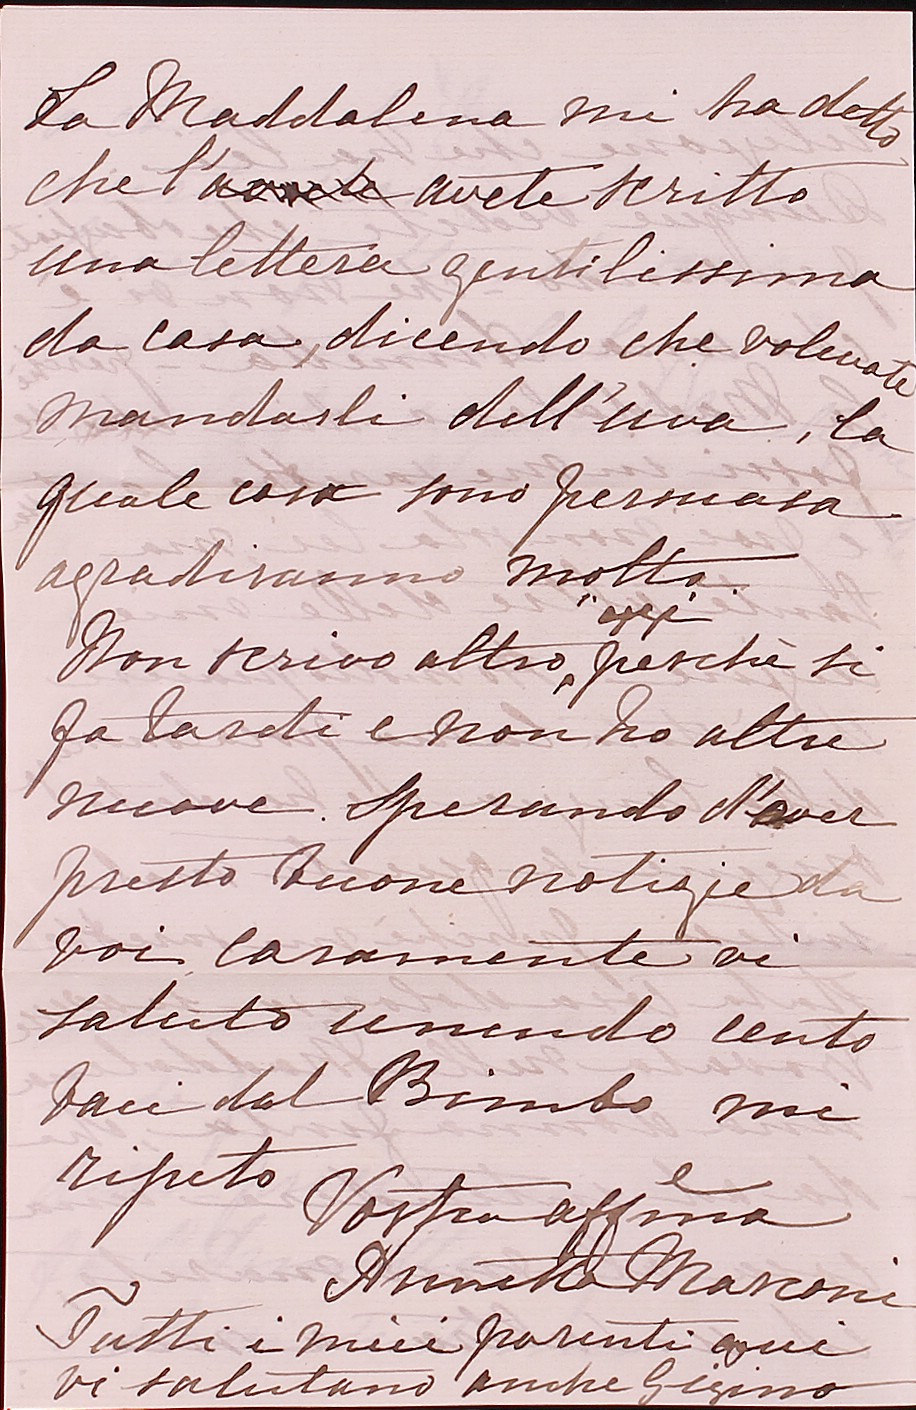 La Maddalena mi ha detto
che l'avete scritto
una lettera gentilissima
da casa, dicendo che volevate
mandarli dell'uva, la
quale cosa sono persuasa
agradiranno molto.
Non scrivo altro, perchè si
fa tardi e non ho altre
nuove. Sperando d'aver
presto buone notizie da
voi caramente vi
saluto unendo cento
baci dal Bimbo mi
ripeto
Vostra affema
Annetta Marconi
Tutti i miei parenti qui
vi salutano anche Gigino